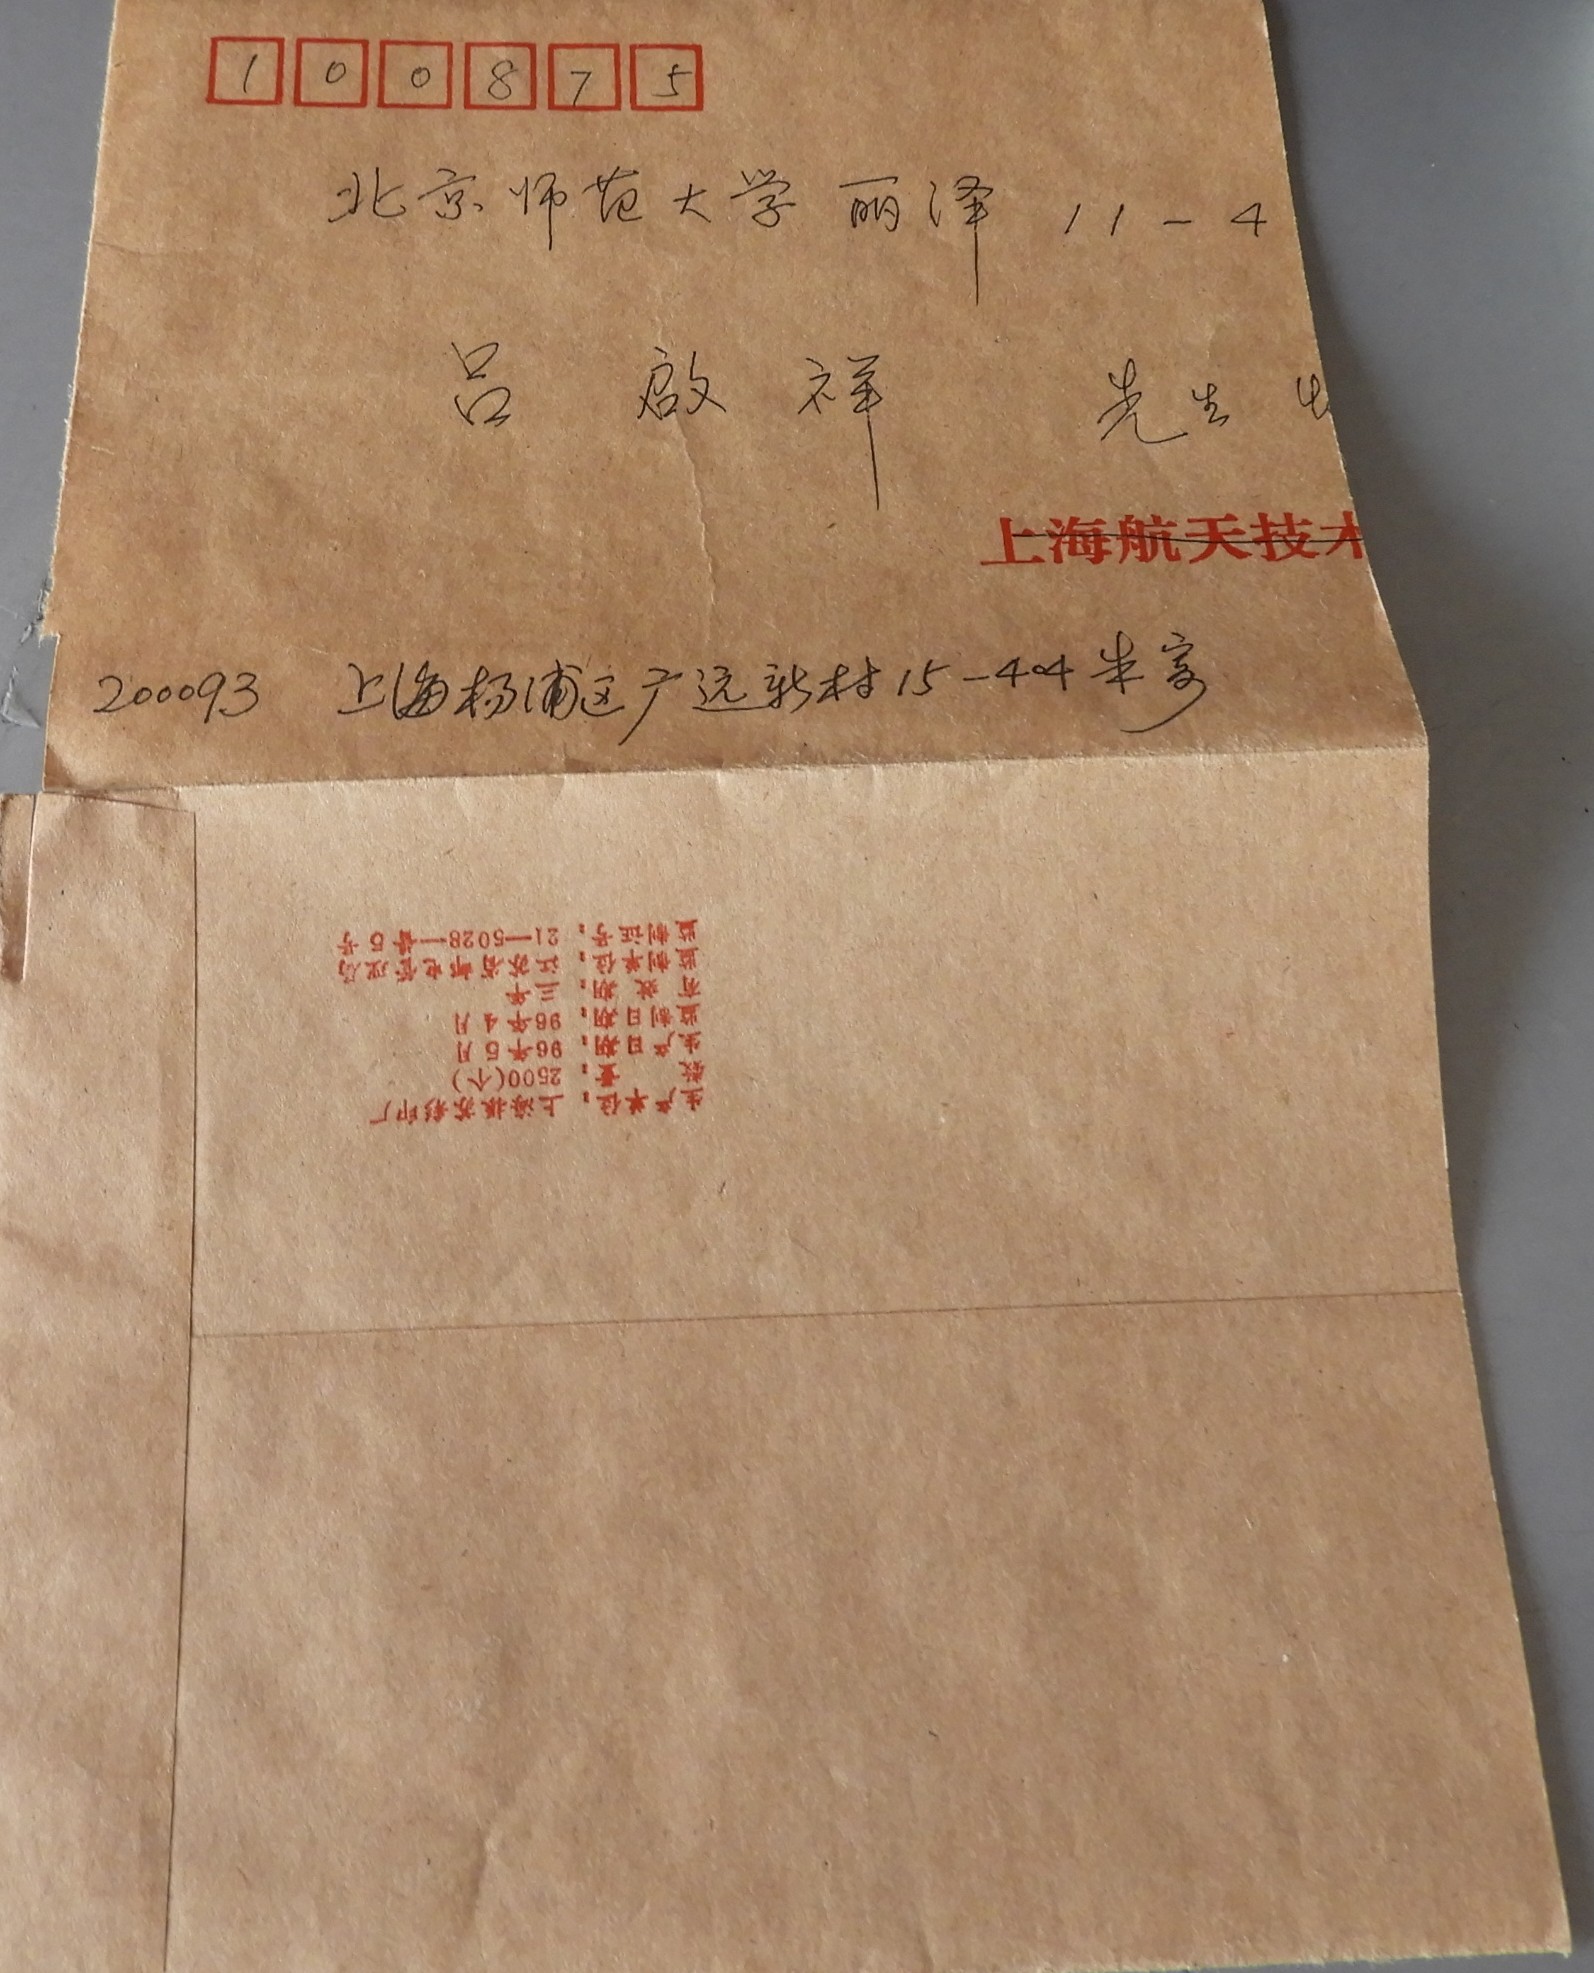 100875
北京师范大学 丽泽 11-4
吕 啟 祥 先生
上海航天技术
200093 上海杨浦区广远新村15-404 朱寄
监制证号：21—5028—备5号
监制单位：江苏省邮电管理局
有 效 期：三年
监制日期：96年4月
生产日期：96年5月
数 量：2500(个)
生产单位：上海振苏彩印厂